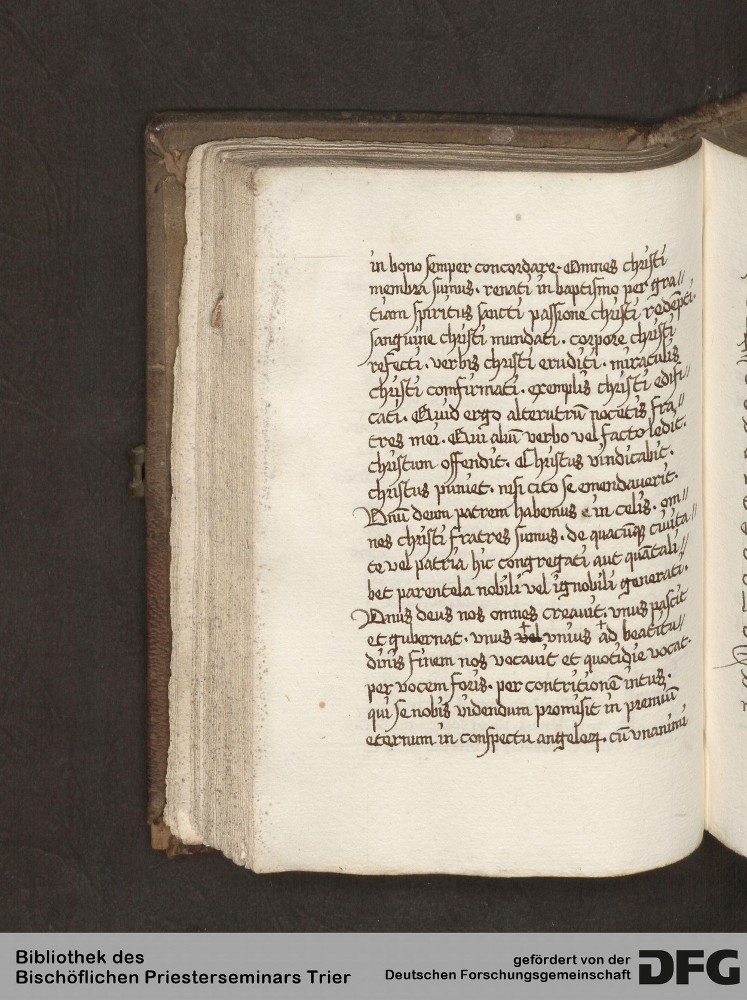 in bono semper concordare. Omnes christi
membra sumus. renati in baptismo per gra//
tiam spiritus sancti passione christi redempti.
sanguine christi mundati. corpore christi
refecti. verbis christi eruditi. miraculis
christi comfirmati. exemplis christi edifi//
cati. Quid ergo alterutrū nocetis fra//
tres mei. Qui aliū verbo vel facto ledit.
christum offendit. Christus vindicabit.
christus puniet. nisi cito se emendaverit.
Vnū deum patrem habemus in celis. om//
nes christi fratres sumus. de quacūqꝫ civita//
te vel patria hic congregati aut quātali//
bet parentela nobili vel ignobili generati.
Vnus deus nos omnes creauit. vnus pascit
et gubernat. vnus vel vnius ad beatitu//
dinis finem nos vocauit et quotidie vocat.
per vocem foris. per contritionē intus.
qui se nobis videndum promisit in premiū
eternum in conspectu angeloꝝ. cū vnanimi
Bibliothek des
Bischöflichen Priesterseminars Trier
gefördert von der
Deutschen Forschungsgemeinschaft
DFG